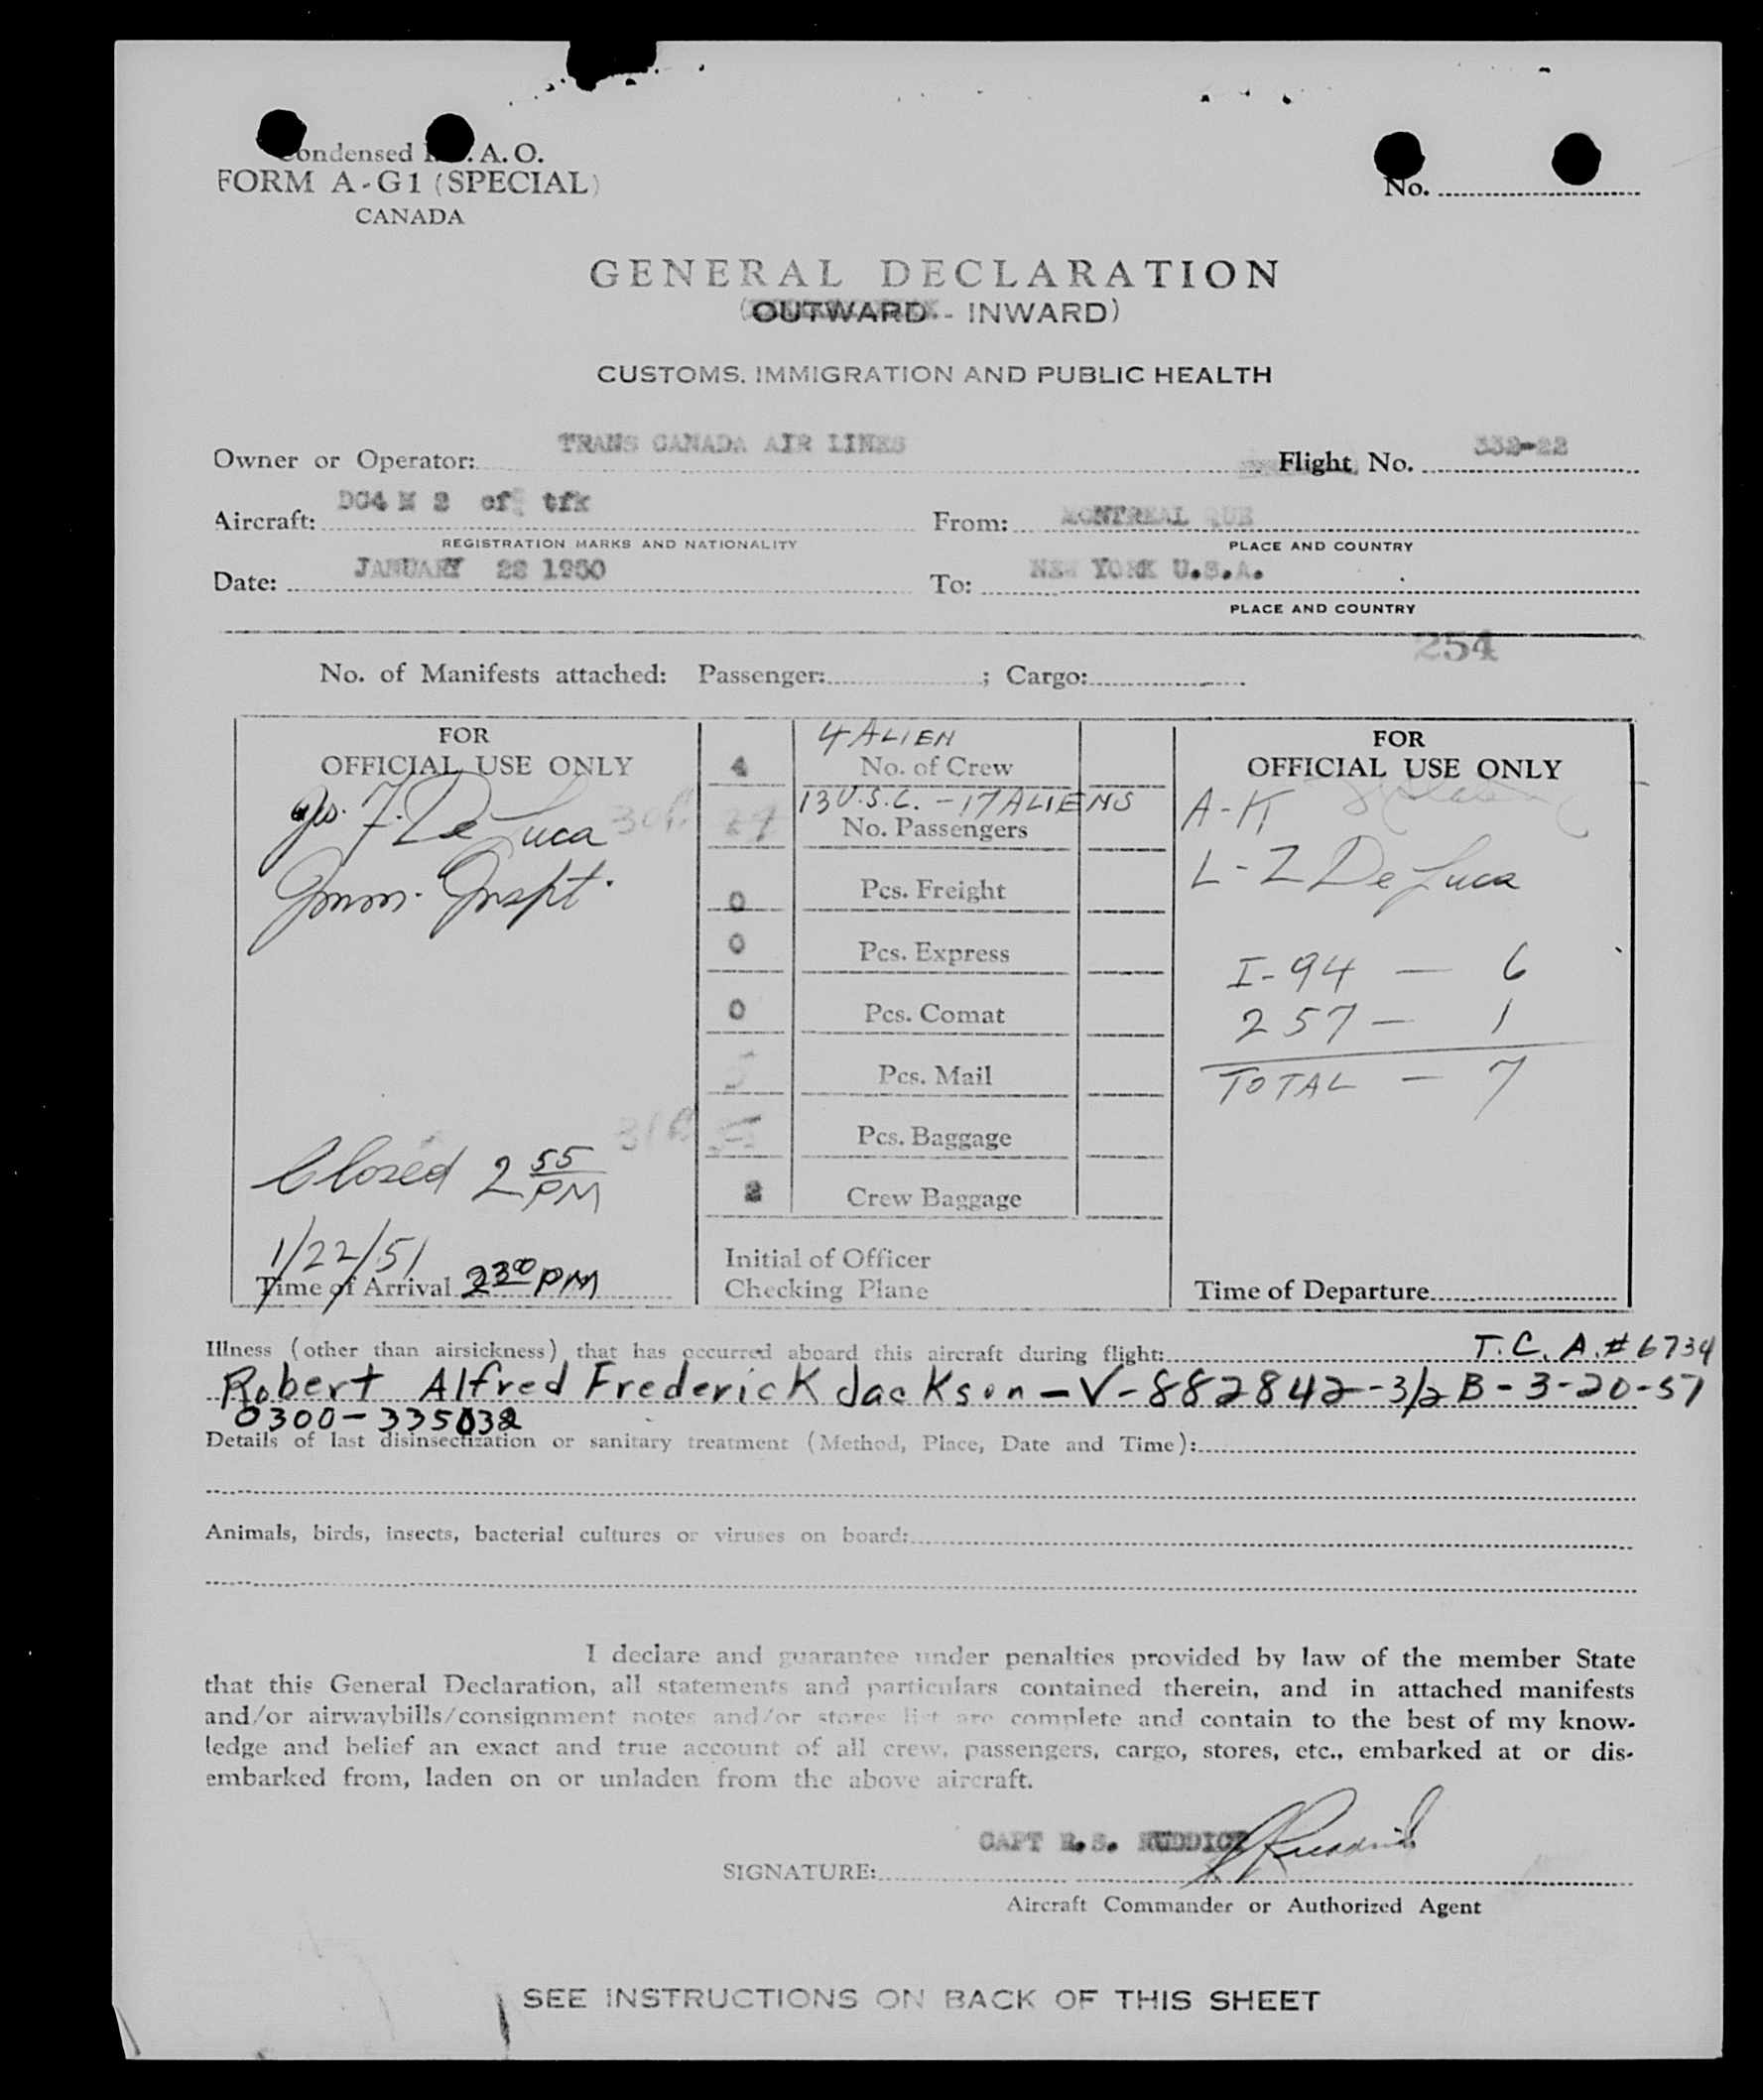 Condensed I.C.A.O.
FORM A-G1 (SPECIAL)
CANADA
No.
GENERAL DECLARATION
(OUTWARD - INWARD)
CUSTOMS, IMMIGRATION AND PUBLIC HEALTH
Owner or Operator: TRANS CANADA AIR LINES Flight No. 332-22
Aircraft: DC4 M 2 cf tfk From: MONTREAL QUE
REGISTRATION MARKS AND NATIONALITY PLACE AND COUNTRY
Date: JANUARY 22 1950 To: NEW YORK U.S.A.
PLACE AND COUNTRY
254
No. of Manifests attached: Passenger: ; Cargo:
FOR
OFFICIAL USE ONLY
Jos. F. De Luca
Immn. Inspt.
Closed 2 55 PM
1/22/51
Time of Arrival 2 30 PM
4 ALIEN
4 No. of Crew
13 U.S.C. - 17 ALIENS
No. Passengers
0 Pcs. Freight
0 Pcs. Express
0 Pcs. Comat
5 Pcs. Mail
Pcs. Baggage
2 Crew Baggage
Initial of Officer
Checking Plane
FOR
OFFICIAL USE ONLY
A-K
L-Z De Luca
I-94 - 6
257 - 1
TOTAL - 7
Time of Departure
Illness (other than airsickness) that has occurred aboard this aircraft during flight: T.C.A.#6734
Robert Alfred Frederick Jackson - V-882842-3/2 B-3-20-57
0300-335032
Details of last disinsectization or sanitary treatment (Method, Place, Date and Time):
Animals, birds, insects, bacterial cultures or viruses on board:
I declare and guarantee under penalties provided by law of the member State
that this General Declaration, all statements and particulars contained therein, and in attached manifests
and/or airwaybills/consignment notes and/or stores list are complete and contain to the best of my know-
ledge and belief an exact and true account of all crew, passengers, cargo, stores, etc., embarked at or dis-
embarked from, laden on or unladen from the above aircraft.
CAPT R.S. RUDDICK
SIGNATURE:
Aircraft Commander or Authorized Agent
SEE INSTRUCTIONS ON BACK OF THIS SHEET